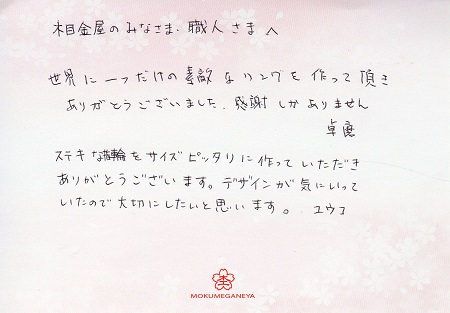 相金屋のみなさま、職人さまへ
世界に一つだけの素敵なリングを作って頂き
ありがとうございました。感謝しかありません
卓
ステキな指輪をサイズピッタリに作っていただき
ありがとうございます。デザインが気にいって
いたので大切にしたいと思います。 ユウコ
MOKUMEGANEYA